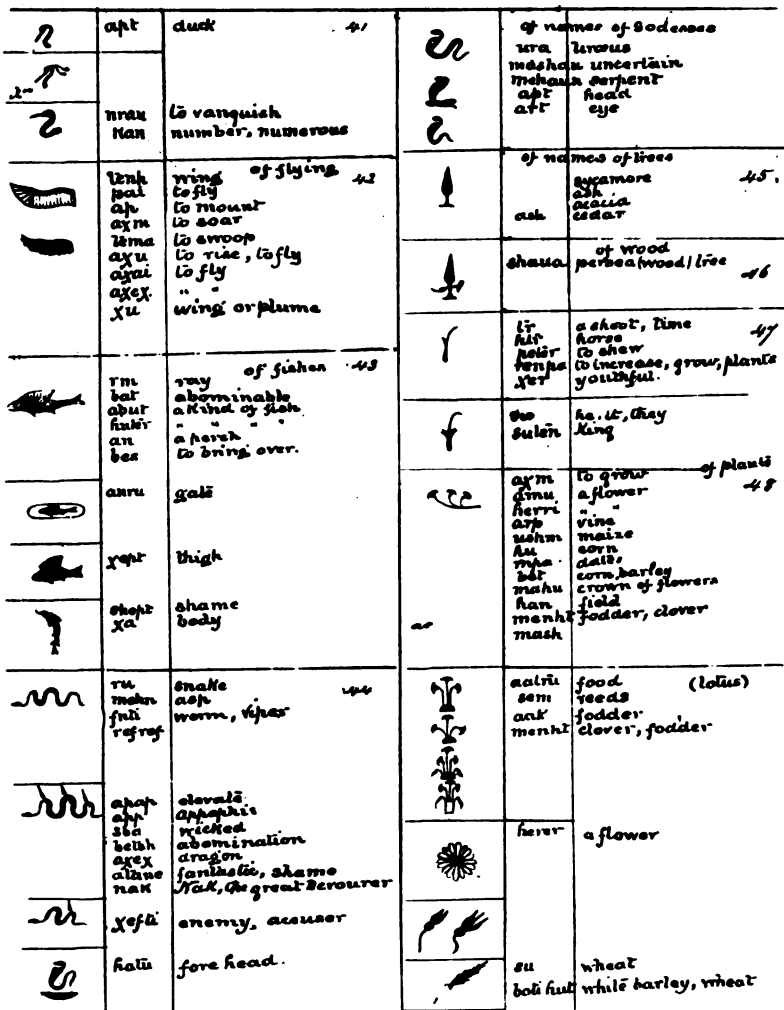 apt duck 41
nrau to vanquish
Kan number, numerous
of flying
tenh wing 42
pai to fly
ap to mount
axm to soar
tema to swoop
axu to rise, to fly
axai to fly
axex. " "
xu wing or plume
of fishes 43
rm ray
bat abominable
abut a Kind of fish
huter " " " "
an a perch
bes to bring over.
anru gate
xept thigh
shept shame
xa body
ru snake 44
mehn asp
fnti worm, viper
refref
apap elevate
app Appophis
sba wicked
betsh abomination
axex dragon
atane fantastic, shame
nak Nak, the great Devourer
xefti enemy, acsuser
hatu fore head.
of names of Godesses
ura Uraus
mashau uncertain
mehaun serpent
apt head
art eye
of names of trees
sycamore 45.
ash
acacia
ash cedar
of wood
shaua persea (wood) tree 46
tr a shoot, time 47
htr horse
peter to shew
renpa to increase, grow, plants
xer youthful.
su he, it, they
suten King
of plants
axm to grow 48
amu a flower
herri " "
arp vine
ushm maize
hu corn
mpa. dates
bet corn, barley
mahu crown of flowers
han field
menht fodder, clover
mash
aalru food (lotus)
sem reeds
aak fodder
menht clover, fodder
herer a flower
su wheat
boti hut white barley, wheat